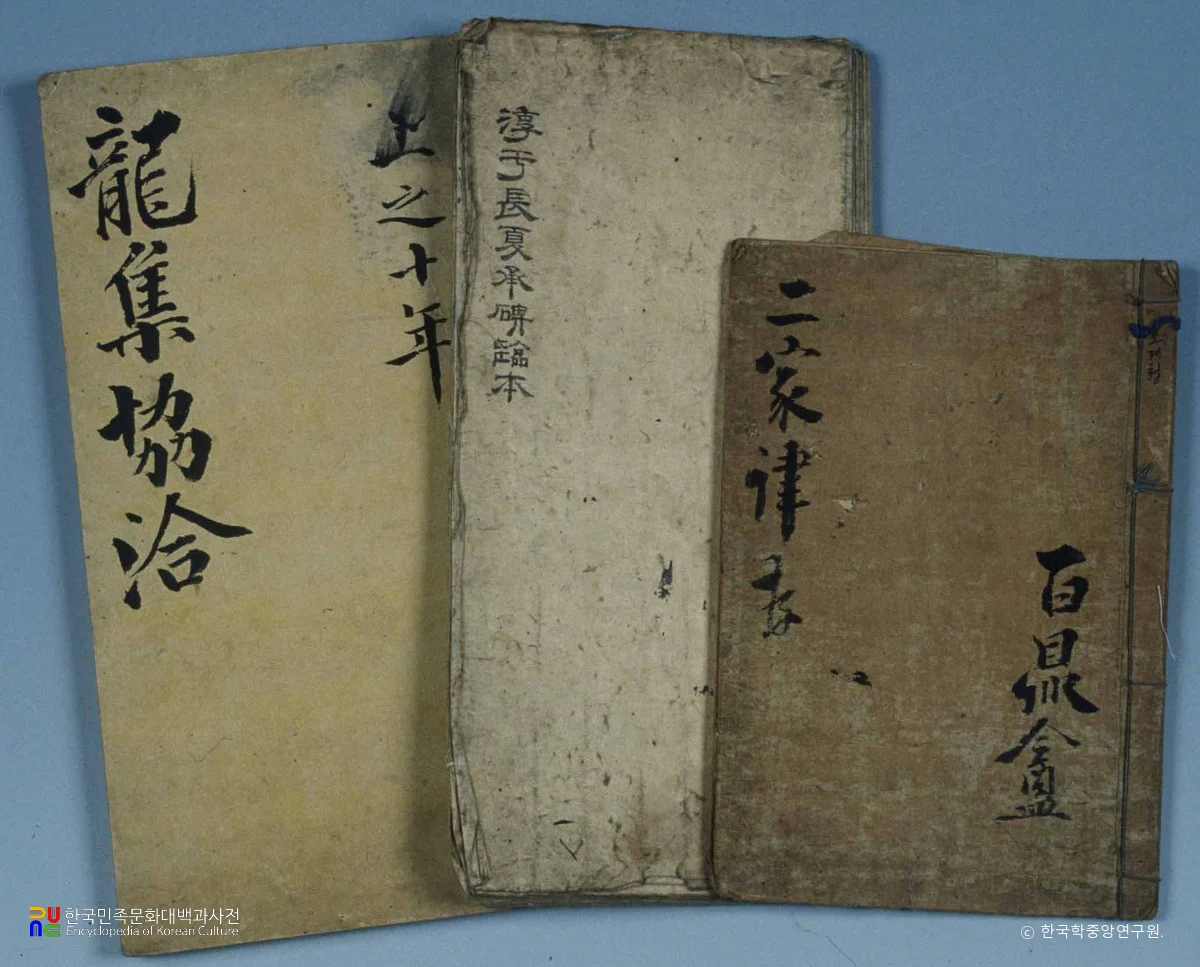 上之十年
龍集協洽
淳于長夏承碑臨本
二家律
百鼎盦
한국민족문화대백과사전
Encyclopedia of Korean Culture
ⓒ 한국학중앙연구원.